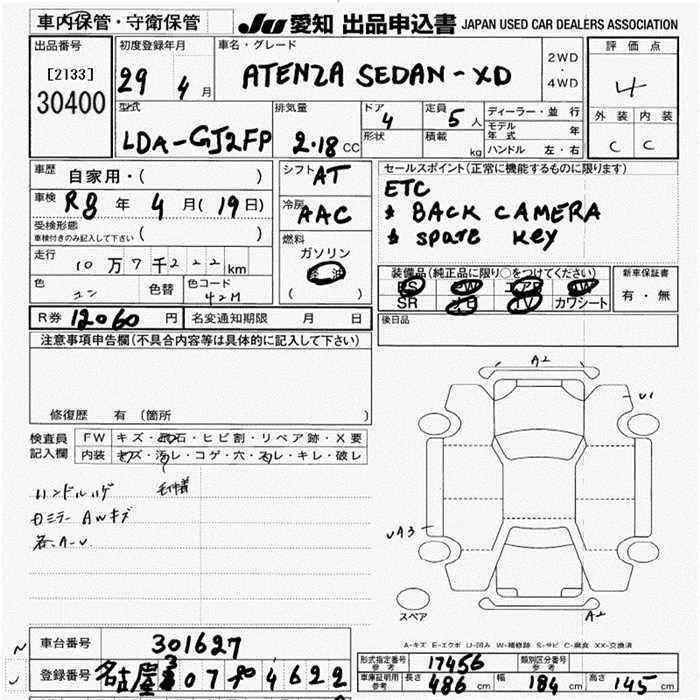 車内保管・守衛保管 JU 愛知 出品申込書 JAPAN USED CAR DEALERS ASSOCIATION
出品番号 初度登録年月 車名・グレード 2WD ・ 4WD 評価点
[2133] 29 4月 ATENZA SEDAN-XD 4
30400 型式 排気量 ドア 4 定員 5人 ディーラー・並行 外装 内装
LDA-GJ2FP 2.18 CC 形状 積載 kg モデル年式 年 C C
ハンドル 左・右
車歴 自家用・( ) シフト AT セールスポイント(正常に機能するものに限ります)
車検 R8年 4月(19日) 冷房 AAC ETC
* BACK CAMERA
受検形態 車検付きのみ記入して下さい ( ) 燃料 * spare key
走行 10万7千222km ガソリン
軽油 装備品(純正品に限り○をつけてください) 新車保証書
色 コン 色替 色コード 42M ( ) PS PW エアB AW 有・無
SR ナビ TV カワシート
R券 12060円 名変通知期限 月 日 後日品
注意事項申告欄(不具合内容等は具体的に記入して下さい)
A2
U1
修復歴 有 (箇所
検査員記入欄 FW キズ・飛石・ヒビ割・リペア跡・X要
内装 キズ・汚レ・コゲ・穴・スレ・キレ・破レ
ハンドルハゲ
ロミラー AWキズ
各A-U
UA3
スペア
A2
A-キズ E-エクボ U-凹み W-補修跡 S-サビ C-腐食 XX-交換済
車台番号 301627
型式指定番号 参考 17456 類別区分番号 参考
登録番号 名古屋 307 4622
車庫証明用 参考 長さ 486 cm 幅 184 cm 高さ 145 cm